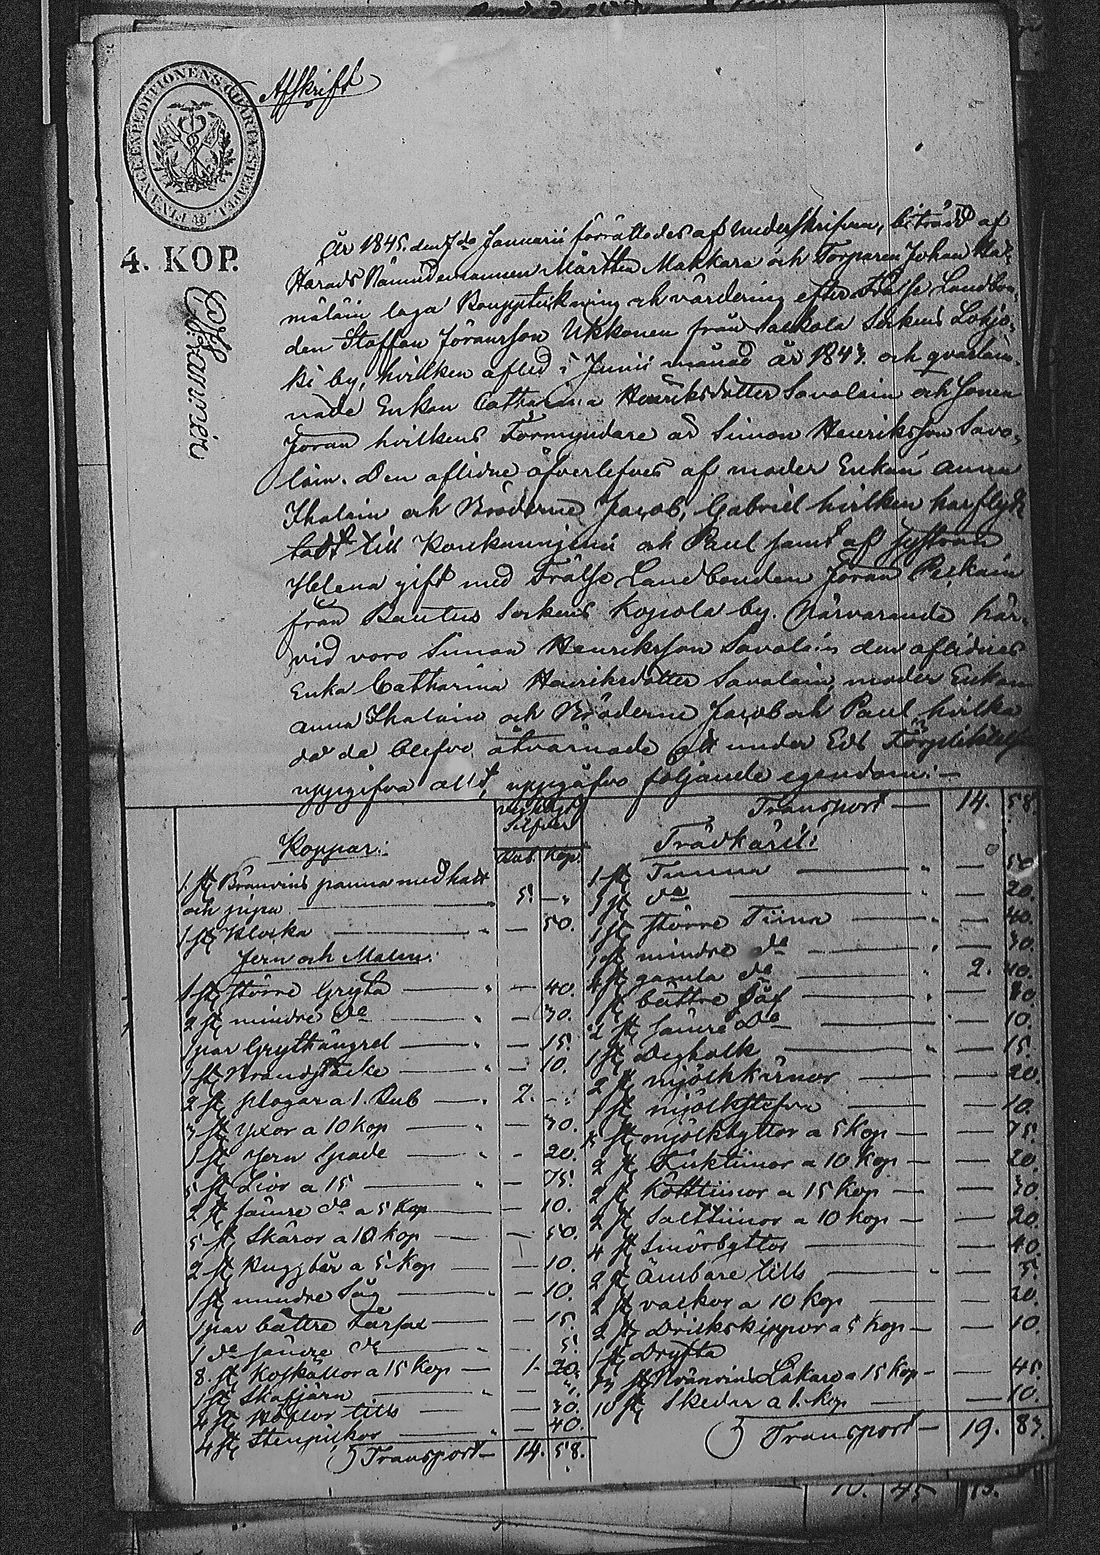 Afskrift
FINANCE EXPEDITIONENS CHARTÆ STEMPEL
4. KOP.
År 1845 den 7de Januarii förrättades af Underskrifven, biträdd af
Härads Nämndemannen Mårthen Makkara och Torparen Johan
laga Bouppteckning och värdering efter Frälse Landbon-
den Staffan Jöransson Ukkonen från Sakkola Sockens Lohjo-
ki by, hvilken afled i Junii månad år 1843. och qvarläm-
nade Enkan Catharina Henriksdotter Savolain och Sonen
Jöran hvilkens Förmyndare är Simon Henriksson Savo-
lain. Den aflidne öfverlefves af moder Enkan Anna
Ihalain och Bröderne Jacob, Gabriel hvilken har flyt-
tadt till och Paul samt af Systran
Helena gift med Frälse Landbonden Jöran Peikain
från Rautus Sockens Kopola by. Närvarande här-
vid voro Simon Henriksson Savolain, den aflidnes
Enka Catharina Henriksdotter Savolain, moder Enkan
Anna Ihalain och Bröderne Jacob och Paul, hvilka
då de blefvo åtvarnade att under Eds Förpliktelse
uppgifva allt, uppgåfvo följande egendom:—
Silfver
Rub. Kop.
Koppar:
1 st Bränvins panna med hatt
och pipa — 5. —
1 st Klocka — 50.
Jern och Malm:
1 st större Gryta — 40.
2 st mindre do — 30.
1 par Grythängsel — 15.
1 st Brandstake — 10.
2 st plogar a 1. Rub — 2. —
3 st yxor a 10 Kop — 30.
1 st Jern Spade — 20.
5 st Lior a 15 — 75.
2 st sämre do a 5 Kop — 10.
5 st Skäror a 10 Kop — 50.
2 st a 5. Kop — 10.
1 st mindre Såg — 10.
1 par bättre — 15.
1 do sämre do — 5.
8. st a 15 Kop — 1. 20.
1 st Skafjärn
4 st tills — 30.
4 st — 40.
Transport — 14. 58.
Transport — 14. 58.
Trädkäril:
1 st Tunna — 50.
1 st do — 20.
1 st större Tiina — 40.
1 st mindre do — 30.
st gamla do — 2. 40.
1 st bättre Såf — 80.
2 st sämre Do — 10.
1 st Degholk — 15.
2 st mjölkkärnor — 20.
1 st mjölkstefva — 10.
st mjölkbyttor a 5 Kop — 75.
2 st a 10 Kop — 20.
2 st Kötttiinor a 15 Kop — 30.
2 st Salttiinor a 10 Kop — 20.
4 st Smörbyttor — 40.
2 st Ämbare tills — 5.
2 st a 10 Kop — 20.
2 st Drickskippor a 5 Kop — 10.
1 st Dryfta
3 st Bränvins Läkare a 15 Kop — 45.
10 st Skedar a 1. Kop — 10.
Transport — 19. 83.
10. 45